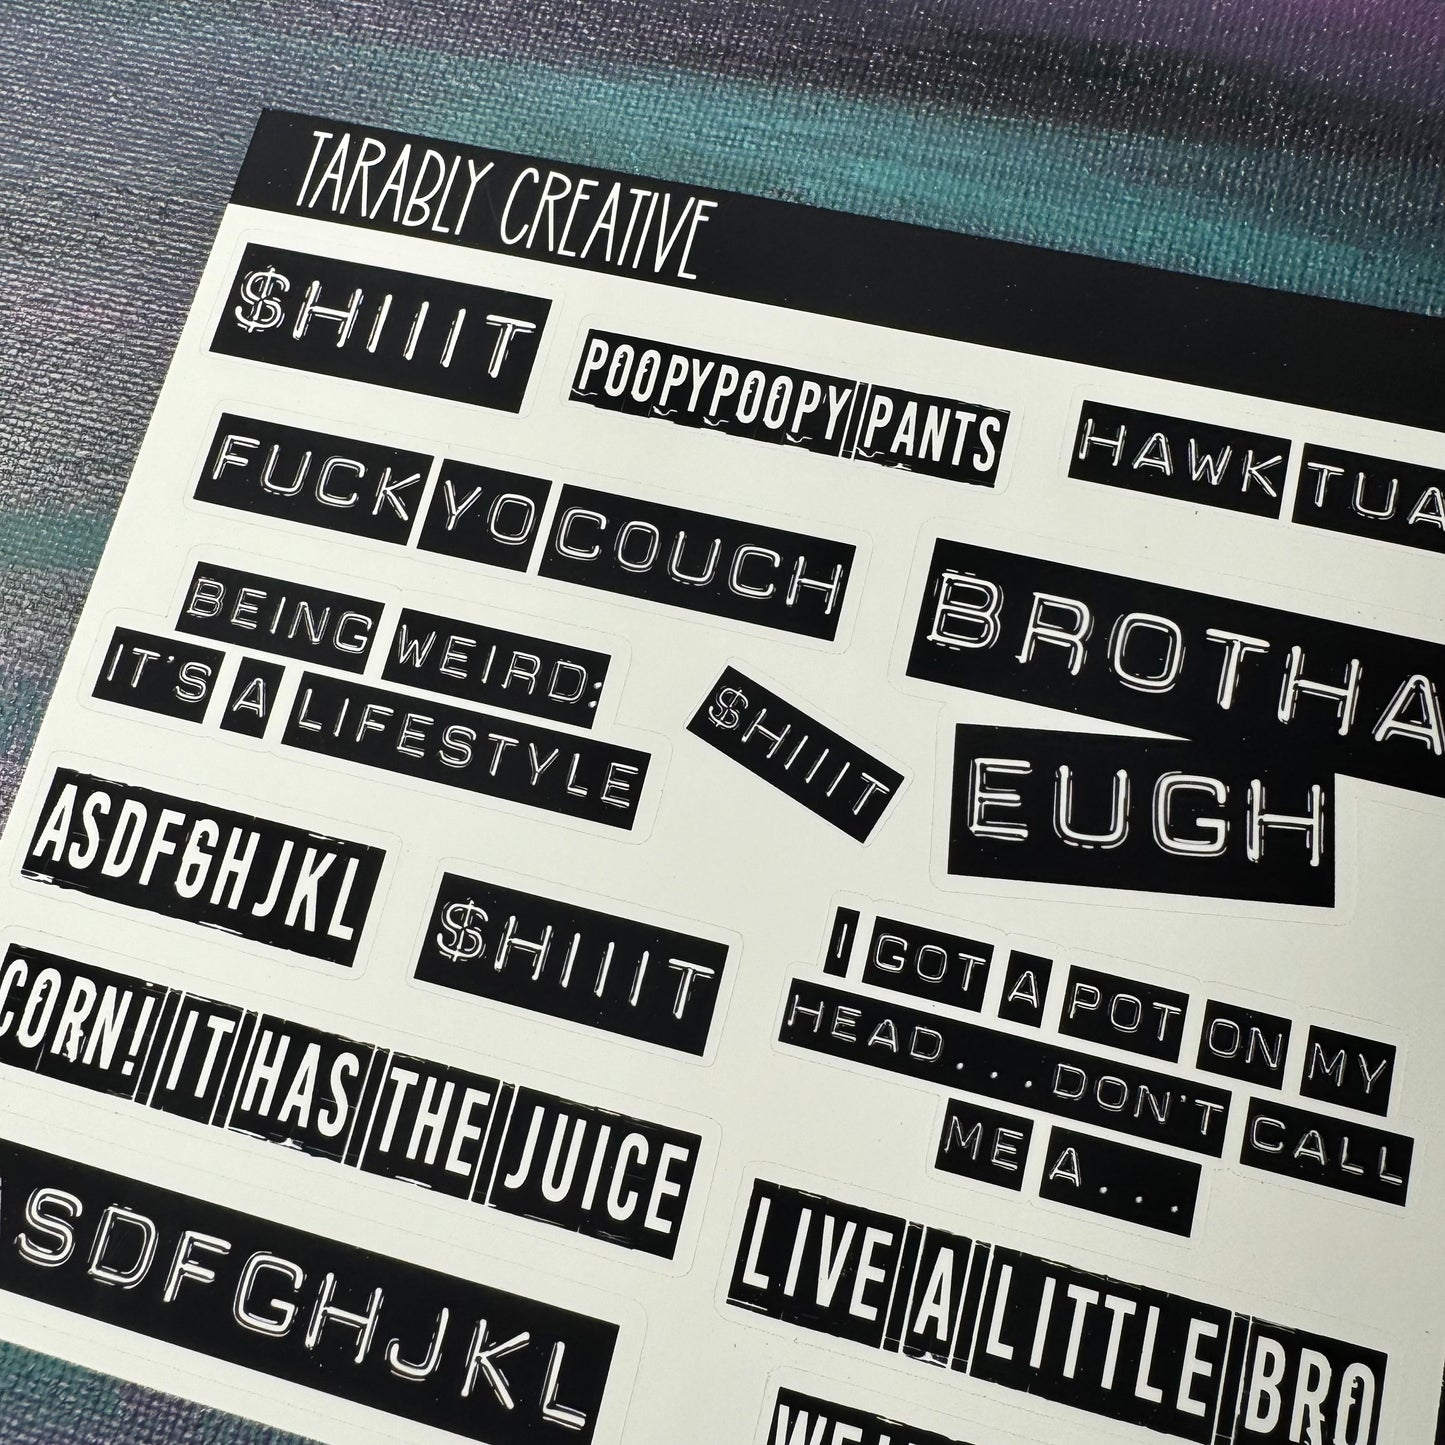 TARABLY CREATIVE
$HIIIT
POOPYPOOPY PANTS
HAWK TUA
FUCK YO COUCH
BROTHA
EUGH
BEING WEIRD:
IT'S A LIFESTYLE
$HIIIT
ASDFGHJKL
$HIIIT
I GOT A POT ON MY
HEAD...DON'T CALL
ME A...
CORN! IT HAS THE JUICE
LIVE A LITTLE BRO
SDFGHJKL